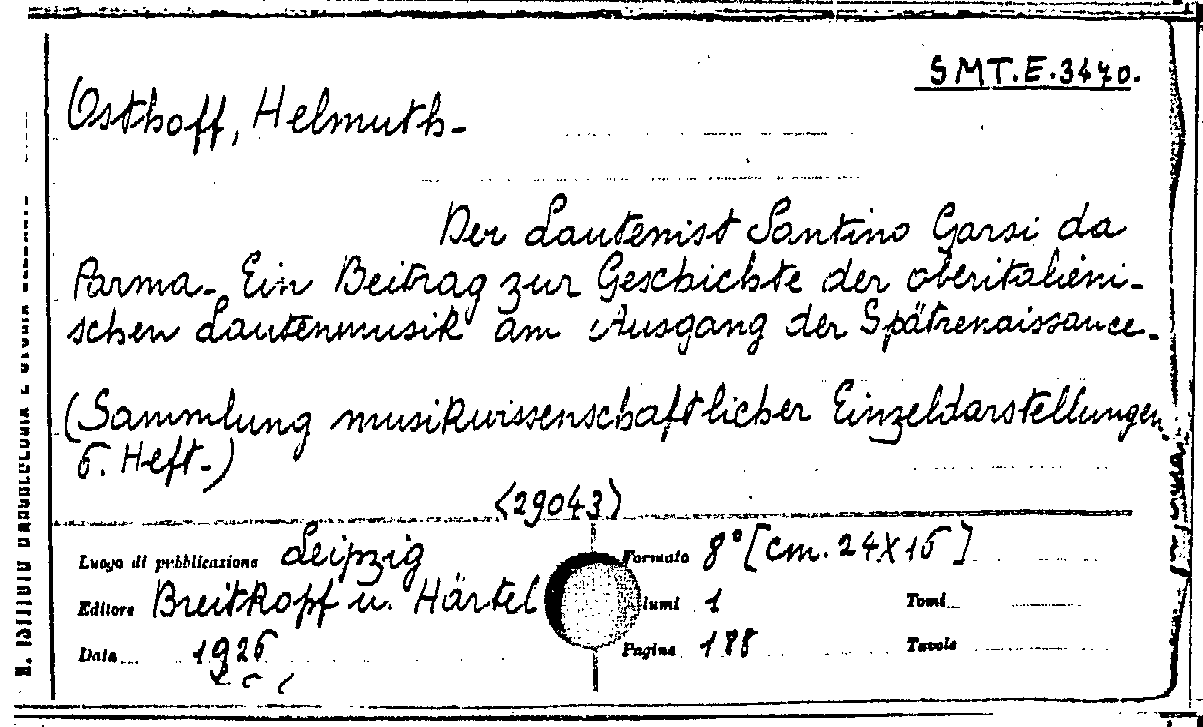 SMT.E.3470.
Osthoff, Helmuth-
Der Lautenist Santino Garsi da
Parma- Ein Beitrag zur Geschichte der oberitalieni-
schen Lautenmusik am Ausgang der Spätrenaissance-
(Sammlung musikwissenschaftlicher Einzeldarstellungen
6. Heft-)
<29043>
Luogo di pubblicazione Leipzig
Formato 8° [cm. 24X16]
Editore Breitkopf u. Härtel
lumi 1
Tomi
Data 1926
Pagine 188
Tavole